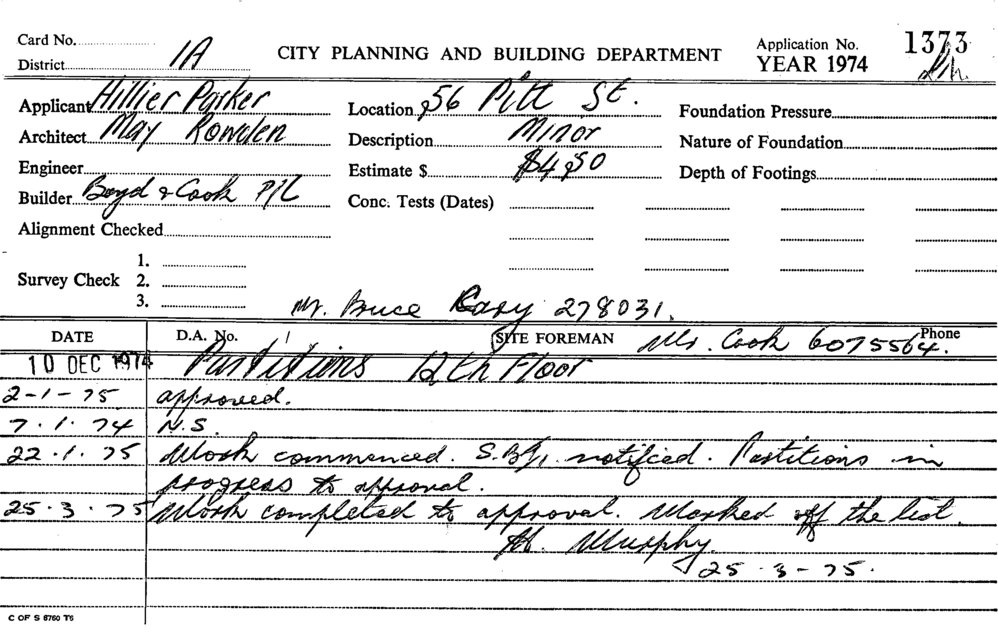 Card No.
District 1A
CITY PLANNING AND BUILDING DEPARTMENT
Application No. 1373
YEAR 1974
Applicant Hillier Parker
Location 56 Pitt St.
Foundation Pressure
Architect May Rowden
Description Minor
Nature of Foundation
Engineer
Estimate $ $4,250
Depth of Footings
Builder Boyd & Cook P/L
Conc. Tests (Dates)
Alignment Checked
Survey Check
1.
2.
3.
Mr. Bruce 278031.
DATE D.A. No. SITE FOREMAN Mr. Cook 6075564. Phone
10 DEC 1974 Partitions 12th Floor
2-1-75 approved.
7.1.74 N.S.
22.1.75 Work commenced. notified. Partitions in
progress to approval.
25.3.75 Work completed to approval. Marked off the list.
M. Murphy
25-3-75.
C OF S 6760 T5